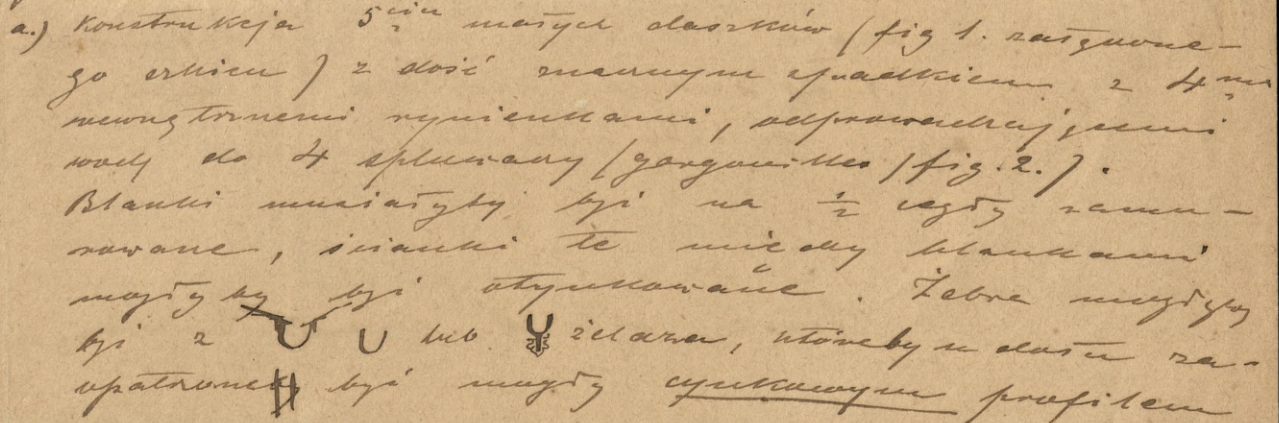 a.) Konstrukcja 5ciu małych daszków (fig 1. załączone-
go szkicu) z dość znacznym spadkiem z 4ma
wewnętrznemi rynienkami, odprowadzającemi
wodę do 4 spluwaczy (gargouilles) fig. 2.).
Blanki musiałyby być na 1/2 cegły zamu-
rowane, ścianki te między blankami
mogłyby być otynkowane. Żebra mogłyby
być z U lub żelaza, któreby u dołu za-
opatrzone być mogły cynkowym profilem